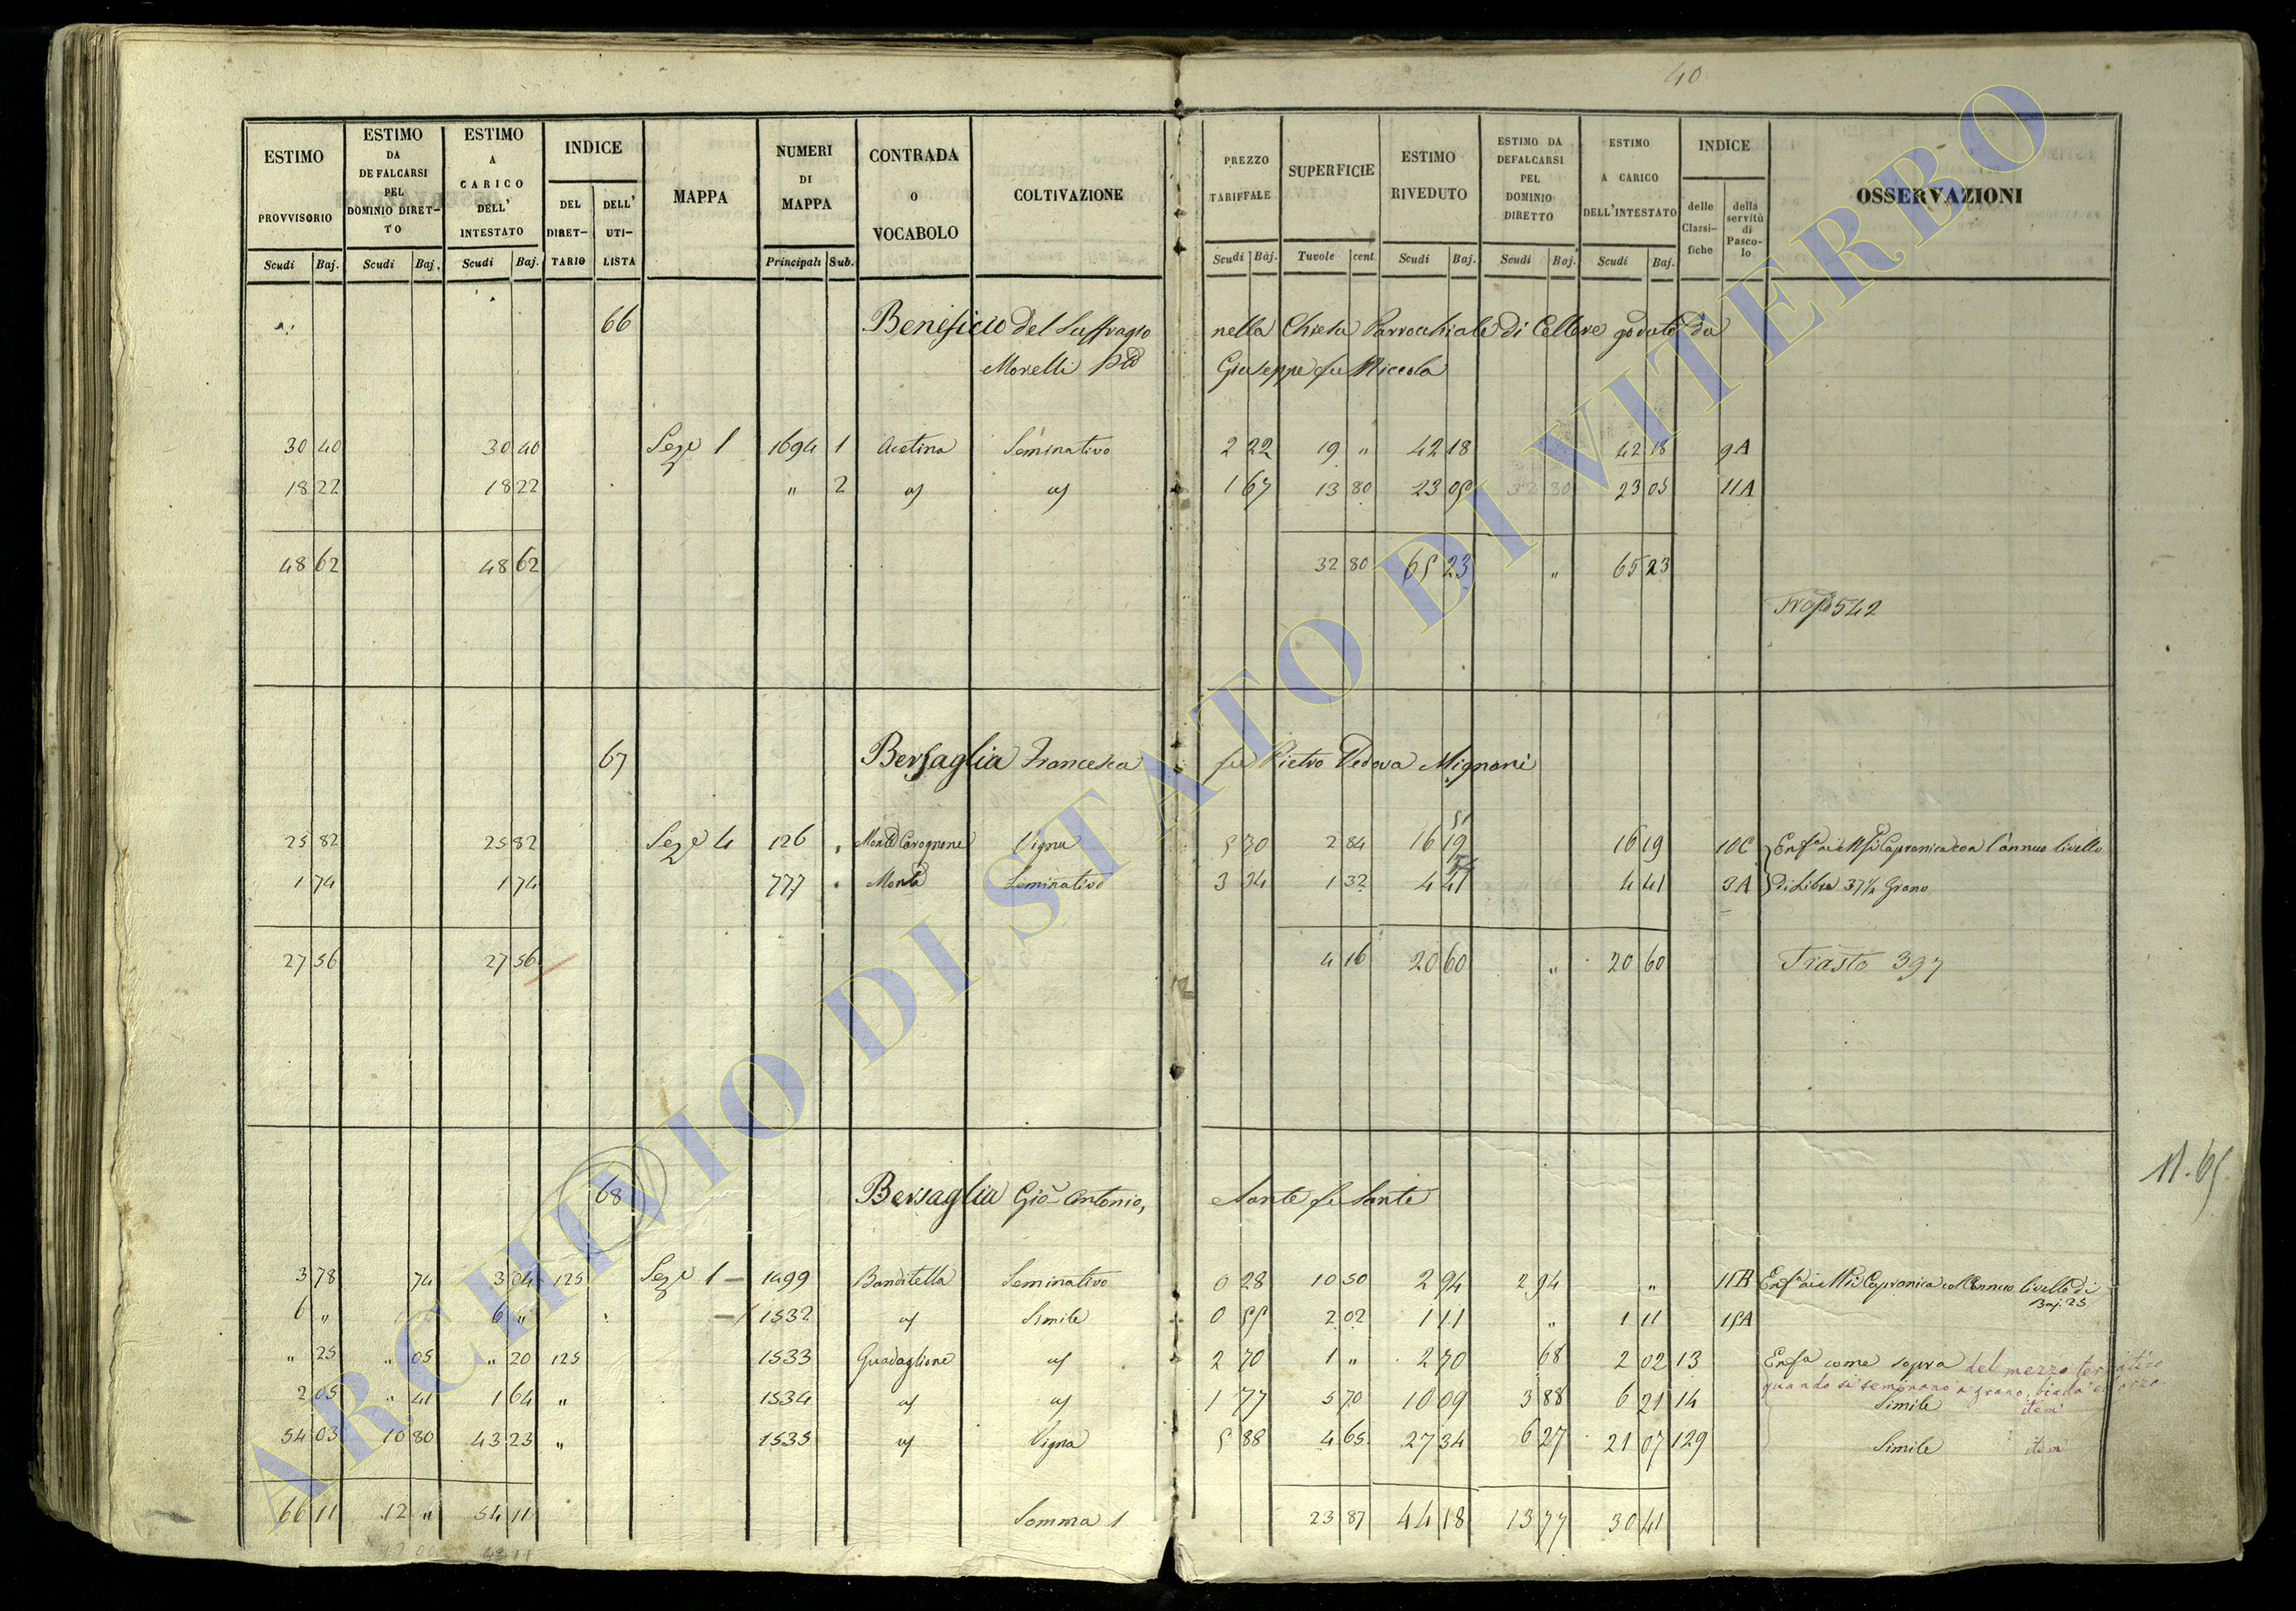 40
ESTIMO PROVVISORIO | ESTIMO DA DEFALCARSI PEL DOMINIO DIRET-TO | ESTIMO A CARICO DELL' INTESTATO | INDICE | MAPPA | NUMERI DI MAPPA | CONTRADA O VOCABOLO | COLTIVAZIONE | PREZZO TARIFFALE | SUPERFICIE | ESTIMO RIVEDUTO | ESTIMO DA DEFALCARSI PEL DOMINIO DIRETTO | ESTIMO A CARICO DELL'INTESTATO | INDICE | OSSERVAZIONI
DEL DIRET-TARIO | DELL' UTI-LISTA | delle Classi-fiche | della servitù di Pasco-lo
Scudi | Baj. | Scudi | Baj. | Scudi | Baj. | Principali | Sub. | Scudi | Baj. | Tavole | cent. | Scudi | Baj. | Scudi | Baj. | Scudi | Baj.
66 Beneficio del Suffragio nella Chiesa Parrocchiale di Cellere goduto da
Morelli Giuseppe fu Niccola
30 40 | 30 40 | Seze 1 | 1694 | 1 | Acetina | Seminativo | 2 22 | 19 " | 42 18 | 42 18 | 9A
18 22 | 18 22 | " | 2 | 1 67 | 13 80 | 23 05 | 32 80 | 23 05 | 11A
48 62 | 48 62 | 32 80 | 65 23 | " | 65 23
542
67 Bersaglia Francesca fu Pietro Vedova Mignani
25 82 | 25 82 | Seze 4 | 126 | " | Monte Carognone | Vigna | 5 70 | 2 84 | 16 19 | 16 19 | 10C | Capranica con l'annuo livello
1 74 | 1 74 | 777 | " | Monte | Seminativo | 3 34 | 1 32 | 4 41 | 4 41 | 3A | di Libre 37½ Grano
27 56 | 27 56 | 4 16 | 20 60 | " | 20 60 | Trasto 397
11.65
68 Bersaglia Gio Antonio, Sante fu Sante
3 78 | 74 | 3 04 | 125 | Seze 1 | 1499 | Banditella | Seminativo | 0 28 | 10 50 | 2 94 | 2 94 | " | 11B | Capranica coll'annuo livello di
Baj. 25
6 " | 6 " | 1532 | Simile | 0 55 | 2 02 | 1 11 | " | 1 11 | 15A
" 25 | " 05 | " 20 | 125 | 1533 | Guadaglione | 2 70 | 1 " | 2 70 | 68 | 2 02 | 13 | Enfa come sopra del mezzo terratico
quando si seminano a grano, biada ed orzo
2 05 | " 41 | 1 64 | " | 1534 | 1 77 | 5 70 | 10 09 | 3 88 | 6 21 | 14 | Simile item
54 03 | 10 80 | 43 23 | " | 1535 | Vigna | 5 88 | 4 65 | 27 34 | 6 27 | 21 07 | 129 | Simile item
66 11 | 12 " | 54 11 | Somma 1 | 23 87 | 44 18 | 13 77 | 30 41
ARCHIVIO DI STATO DI VITERBO